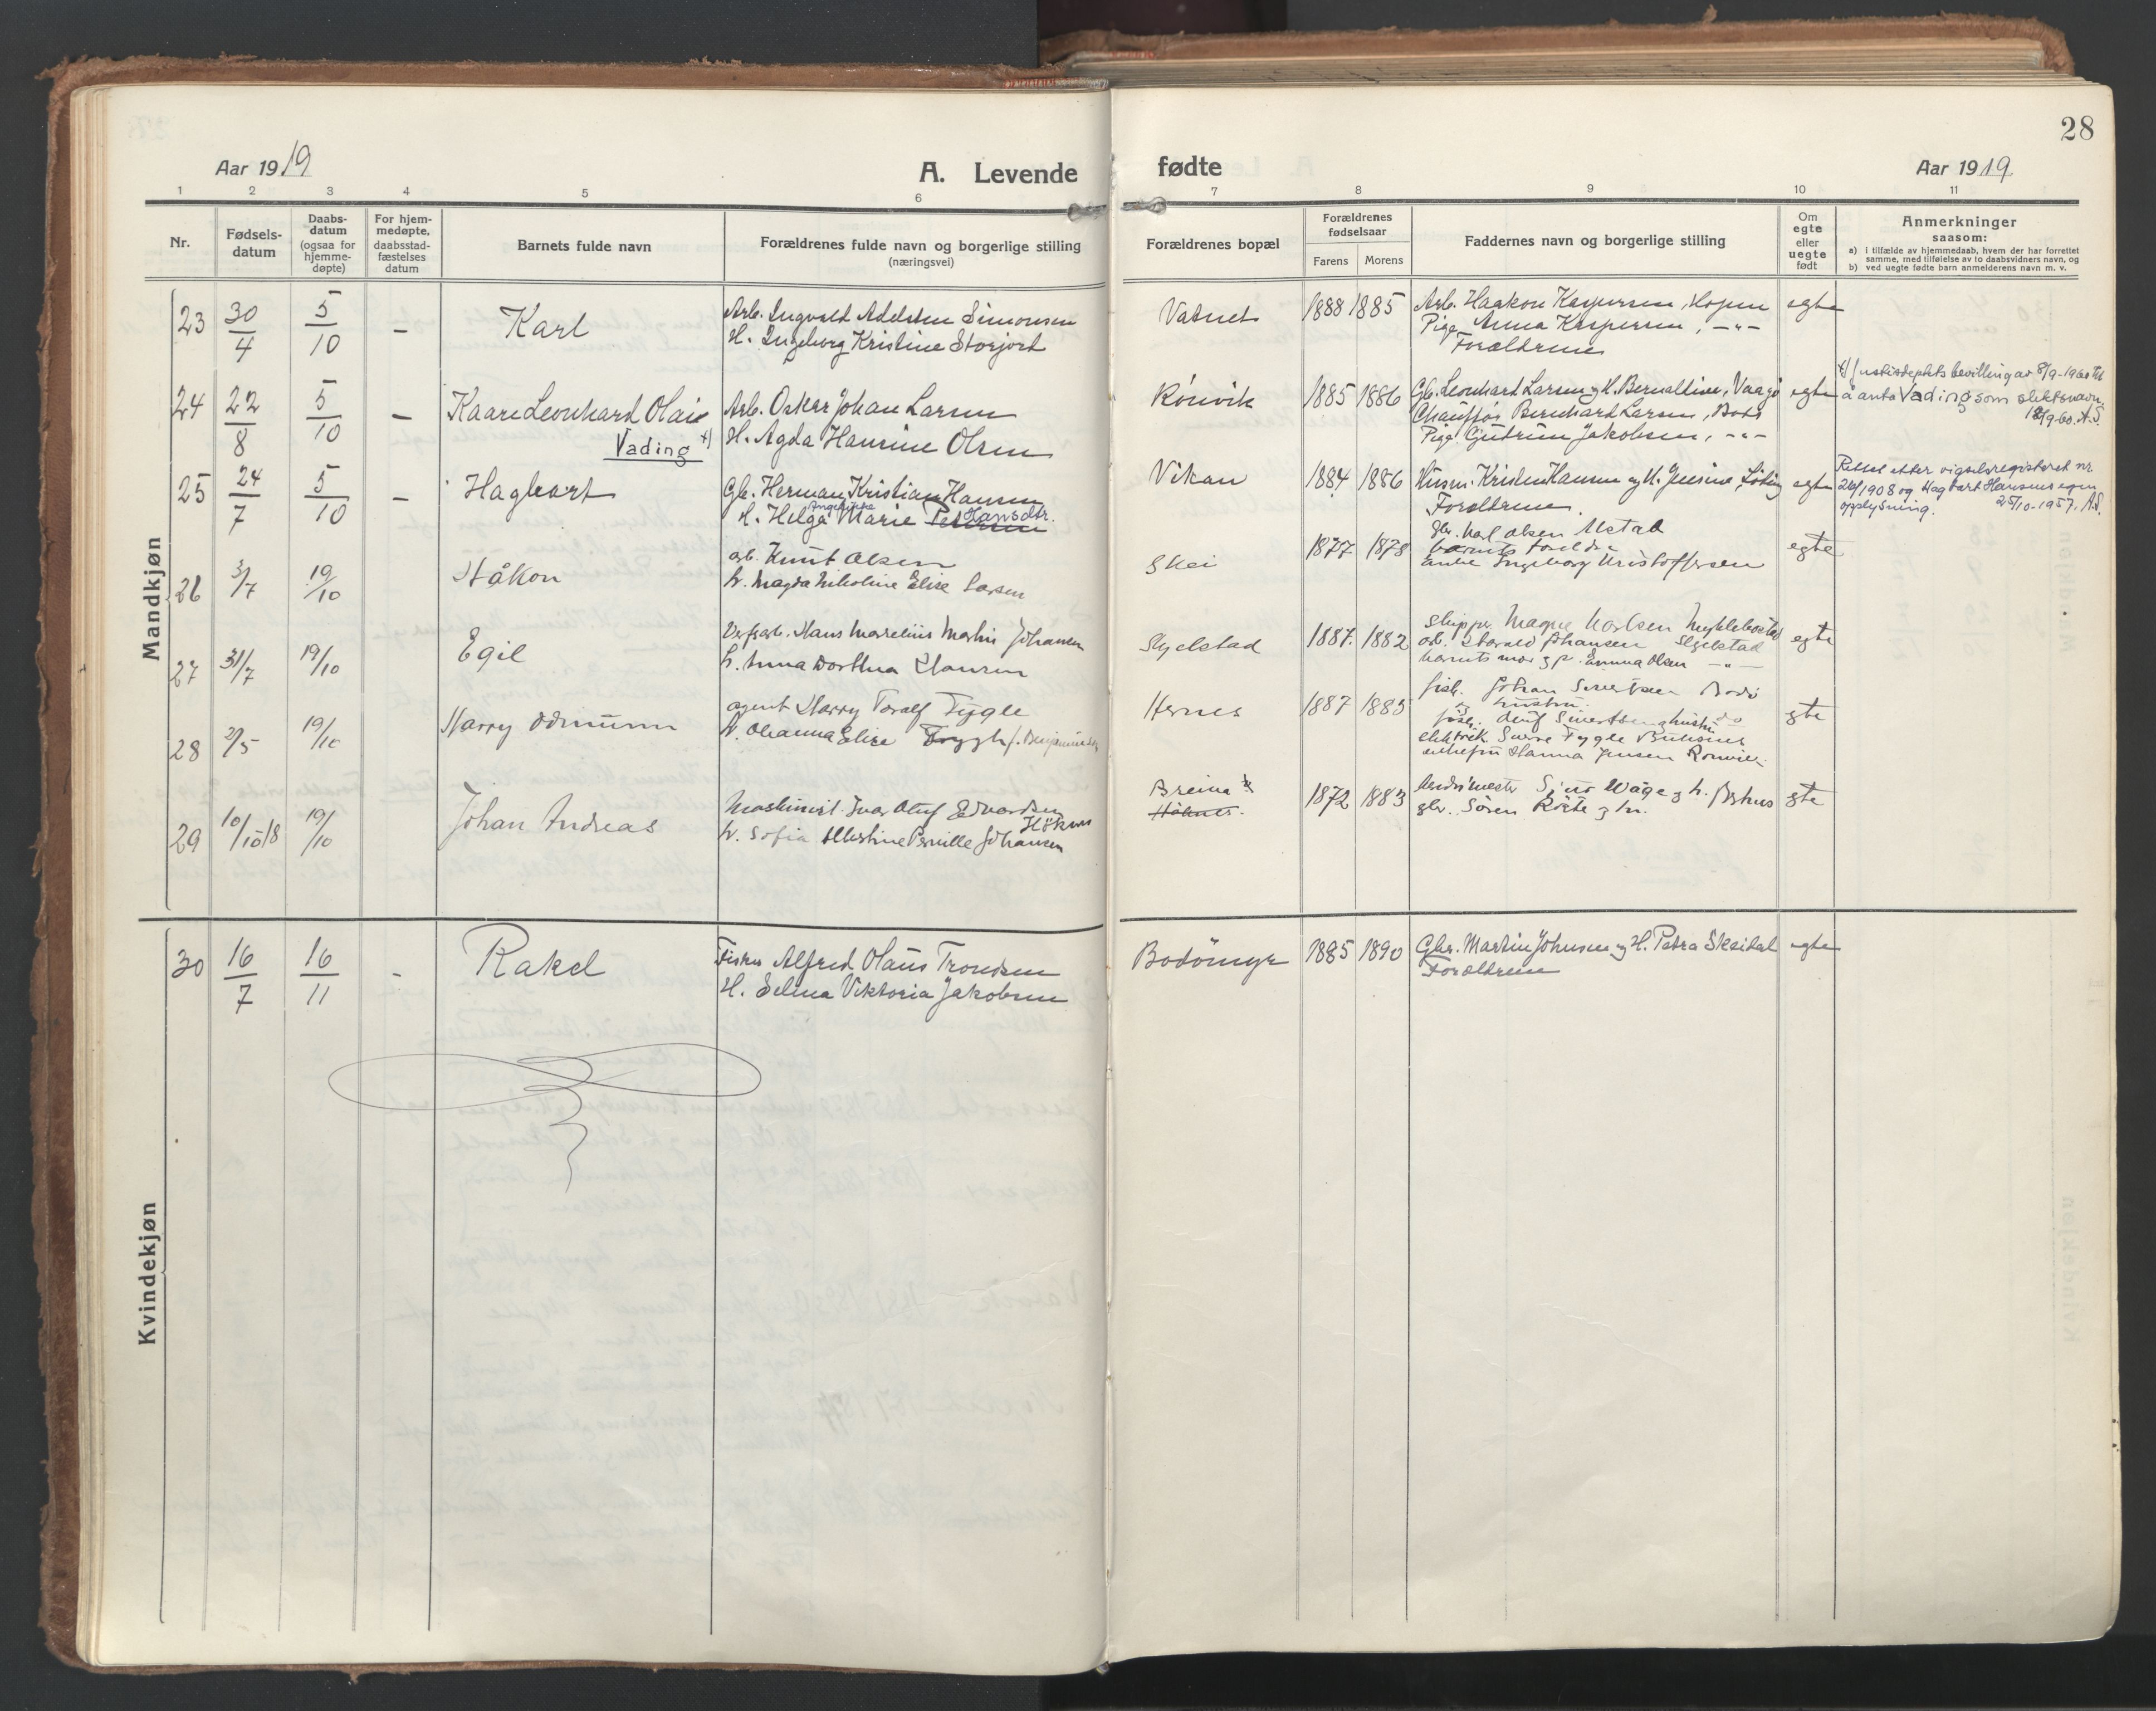 28
Aar 1919
A. Levende fødte
Aar 1919
1 2 3 4 5 6 7 8 9 10 11
Nr.
Fødsels-
datum
Daabs-
datum
(ogsaa for
hjemme-
døpte)
For hjem-
medøpte,
daabsstad-
fæstelses
datum
Barnets fulde navn
Forældrenes fulde navn og borgerlige stilling
(næringsvei)
Forældrenes bopæl
Forældrenes
fødselsaar
Farens Morens
Faddernes navn og borgerlige stilling
Om
egte
eller
uegte
født
Anmerkninger
saasom:
a) i tilfælde av hjemmedaab, hvem der har forrettet
samme, med tilføielse av to daabsvidners navn, og
b) ved uegte fødte barn anmelderens navn m. v.
Mandkjøn
23 30/4 5/10 – Karl
Arb. Ingvald Adelsten Simonsen
H. Ingeborg Kristine Storjord
Vatnet 1888 1885
Arb. Haakon Kaspersen, Hopen
Pige Anna Kaspersen, –"–
Forældrene
egte
24 22/8 5/10 – Kaare Leonhard Olai
Vading +)
Arb. Oskar Johan Larsen
H. Agda Hansine Olsen
Rönvik 1885 1886
Gb. Leonhard Larsen og H. Bernaltine, Vaagö
Chauffør Bernhard Larsen, Bodö
Pige Gudrun Jakobsen, –"–
egte
+) Justisdep.ets bevilling av 8/9-1960 til
å anta Vading som slektsnavn.
12/9-60. A.S.
25 24/7 5/10 – Hagbart
Gb. Herman Kristian Hansen
H. Helga Angelikke Marie Petersen Hansdtr.
Vikan 1884 1886
Husm. Kristen Hansen og H. Jensine, Löding
Forældrene.
egte
Rettet etter vigselsregisteret nr
26/1908 og Hagbart Hansens egen
opplysning. 25/10-1957. A.S.
26 3/7 19/10 Håkon
arb. Knut Olsen
h. Magda Nikoline Elise Larsen
Skei 1877 1878
gbr. Karl Olsen Alstad
barnets foreldre
enke Ingeborg Kristoffersen
egte
27 31/7 19/10 Egil
Verftsarb. Hans Marelius Martin Johansen
h. Anna Dorthea Hansen
Skjelstad 1887 1882
skipper Magne Karlsen Myklebostad
arb. Harald Johansen Skjelstad
barnets mor og p. Emma Olsen –"–
egte
28 2/5 19/10 Harry Odmunn
agent Harry Toralf Fygle
h. Oleanna Elise Fygle f. Benjaminsen
Hernes 1887 1885
fisk. Johan Sivertsen Bodö
og hustru.
fisk. Oluf Sivertsen og hustru do
elektrik. Sverre Fygle
Hanna Jensen Rönvik
egte
29 10/10 18 19/10 Johan Andreas
Maskinist Ivar Oluf Edvardsen
Höknes
h. Sofia Albertine Pernille Johansen
Breivik
Höknes. 1872 1883
Wåge og h.
gbr. Sören Röste og h.
egte
Kvindekjøn
30 16/7 16/11 - Rakel
Fisker Alfred Olaus Trondsen
H. Selma Viktoria Jakobsen
Bodömyr 1885 1890
Gbr. Martin Johnsen og H. Petra Skeidal
Forældrene
egte